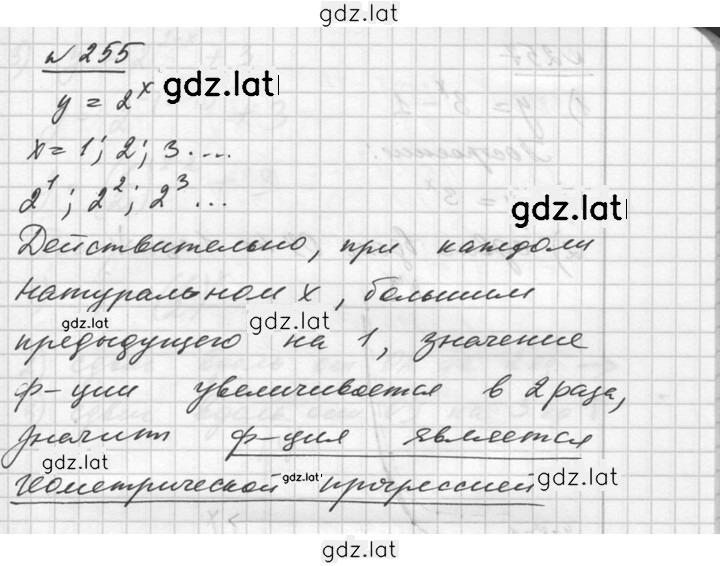 gdz.lat
№ 255
gdz.lat
y = 2^x
x = 1; 2; 3....
2^1; 2^2; 2^3 ...
gdz.lat
Действительно, при каждом
натуральном x, большим
gdz.lat gdz.lat
предыдущего на 1, значение
ф-ции увеличивается в 2 раза,
значит ф-ция является
gdz.lat gdz.lat gdz.lat
геометрической прогрессией
gdz.lat